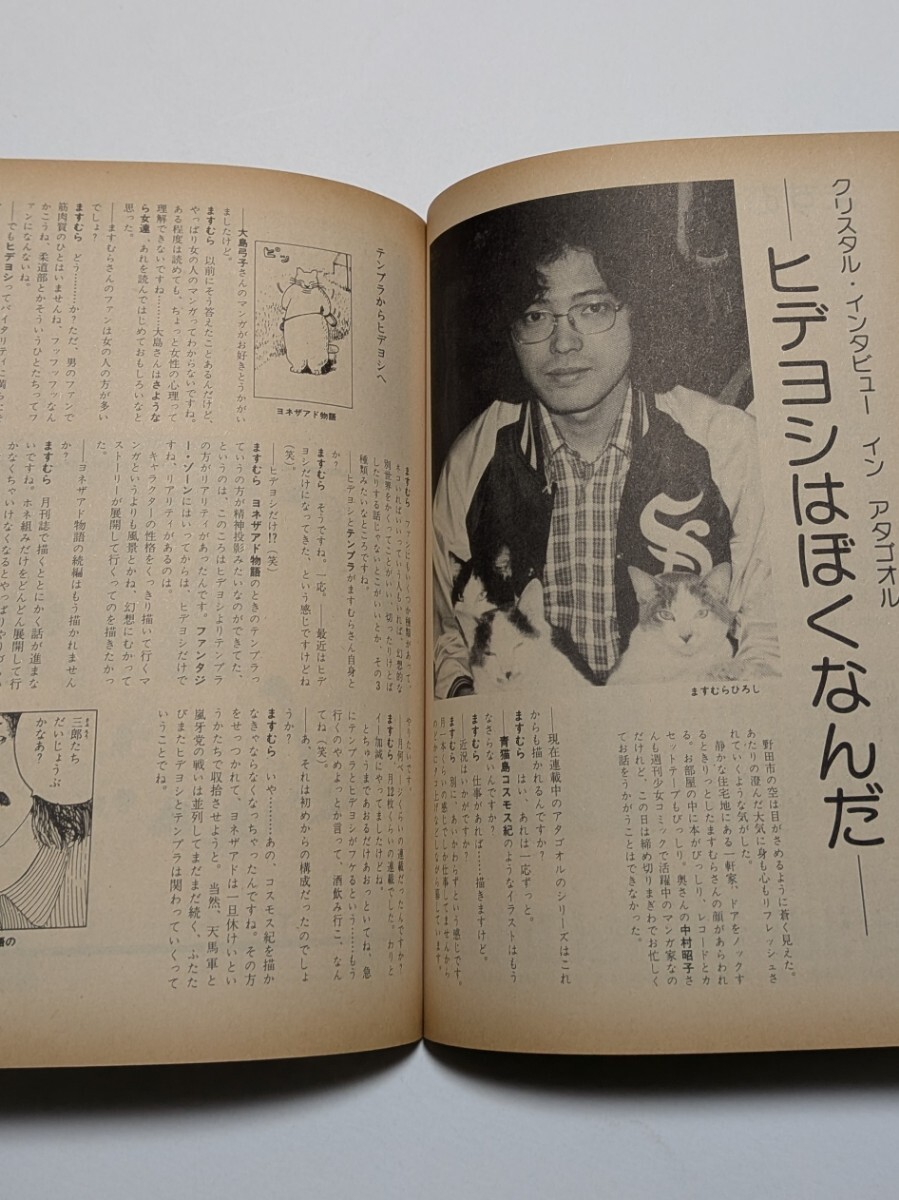 クリスタル・インタビュー イン アタゴオル
―ヒデヨシはぼくなんだ―
ますむらひろし
野田市の空は目がさめるように蒼く見えた。
あたりの澄んだ大気に身も心もリフレッシュさ
れていくような気がした。
静かな住宅地にある一軒家、ドアをノックす
るときりっとしたますむらさんの顔があらわれ
る。お部屋の中に本がびっしり、レコードとカ
セットテープもびっしり。奥さんの中村昭子さ
んも週刊少女コミックで活躍中のマンガ家なの
だけれど、この日は締め切りまぎわでお忙しく
てお話をうかがうことはできなかった。
――現在連載中のアタゴオルのシリーズはこれ
からも描かれるんですか?
ますむら はい、あれは一応ずっと。
――青猫島コスモス紀のようなイラストはもう
なさらないんですか?
ますむら 仕事があれば……描きますけど。
――近況はいかがですか?
ますむら 別に、あいかわらずという感じです。
月一本くらいの感じでしか仕事してませんから
ますむら ファンにもいくつか種類があって、
ネコいればいいっていう人もいれば、幻想的な
別世界をかくってことがいい、切ったりけとば
したりする話じゃないとこがいいとか、その3
種類みたいなところですね。
――ヒデヨシとテンプラがますむらさん自身と
か?
ますむら そうですね。一応。――最近はヒデ
ヨシだけになってきた、という感じですけどね
(笑)。
――ヒデヨシだけ!?(笑)
ますむら ヨネザアド物語のときのテンプラっ
ていう方が精神投影みたいなのができてた、
というのは、このころはヒデヨシよりテンプラ
の方がリアリティがあったんです。ファンタジ
ー・ゾーンにはいってからは、ヒデヨシだけで
すね、リアリティがあるのは。
キャラクターの性格をくっきり描いて行くマ
ンガというよりも風景とかね、幻想にむかって
ストーリーが展開して行くってのを描きたかっ
た。
――ヨネザアド物語の続編はもう描かれません
か?
ますむら 月刊誌で描くととにかく話が進まな
いですね。ホネ組みだけをどんどん展開して行
かなくちゃいけなくなるとやっぱり
やりたいです。
――月何ページくらいの連載だったんですか?
ますむら 月22枚くらいの連載でした。わりと
イー加減にやってましたけどね。
とちゅうまであおるだけあおっといてね、急
にテンプラとヒデヨシがフケるという……もう
行くのやめようっとか言って、酒飲み行こ、なん
てね(笑)。
――あ、それは初めからの構成だったのでしょ
うか?
ますむら いや……あの、コスモス紀を描か
なきゃならなくなっちゃったんですね。その方
をせっつかれて、ヨネザアドは一旦休けいとい
うかたちで収拾させようと。当然、天馬軍と
嵐牙党の戦いは並列してまだまだ続く、ふたた
びまたヒデヨシとテンプラは関わっていくって
いうことでね。
テンプラからヒデヨシへ
ピッ
ヨネザアド物語
――大島弓子さんのマンガがお好きとうかがい
ましたけど。
ますむら 以前にそう答えたことあるんだけど、
やっぱり女の人のマンガってわからないですね。
ある程度は読めても、ちょっと女性の心理って
理解できないですね……大島さんはさような
ら女達、あれを読んではじめておもしろいなと
思った。
――ますむらさんのファンは女の人の方が多い
でしょ?
ますむら どう………か?ただ、男のファンで
筋肉質のひとはいませんね、フッフッフッなん
かこうね、柔道部とかそういうひとたちってフ
ァンになんないね。
――でもヒデヨシってバイタリティに
三郎たち
だいじょうぶ
かなあ?
語の